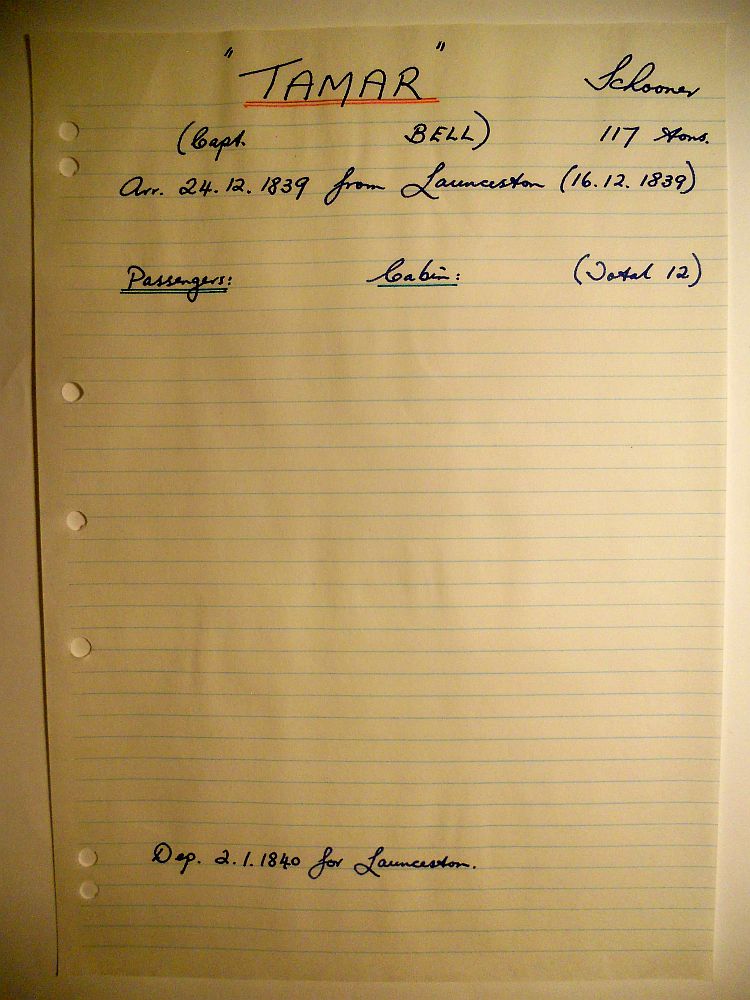 "TAMAR" Schooner
(Capt. BELL) 117 tons.
Arr. 24.12.1839 from Launceston (16.12.1839)
Passengers: Cabin: (Total 12)
Dep. 2.1.1840 for Launceston.